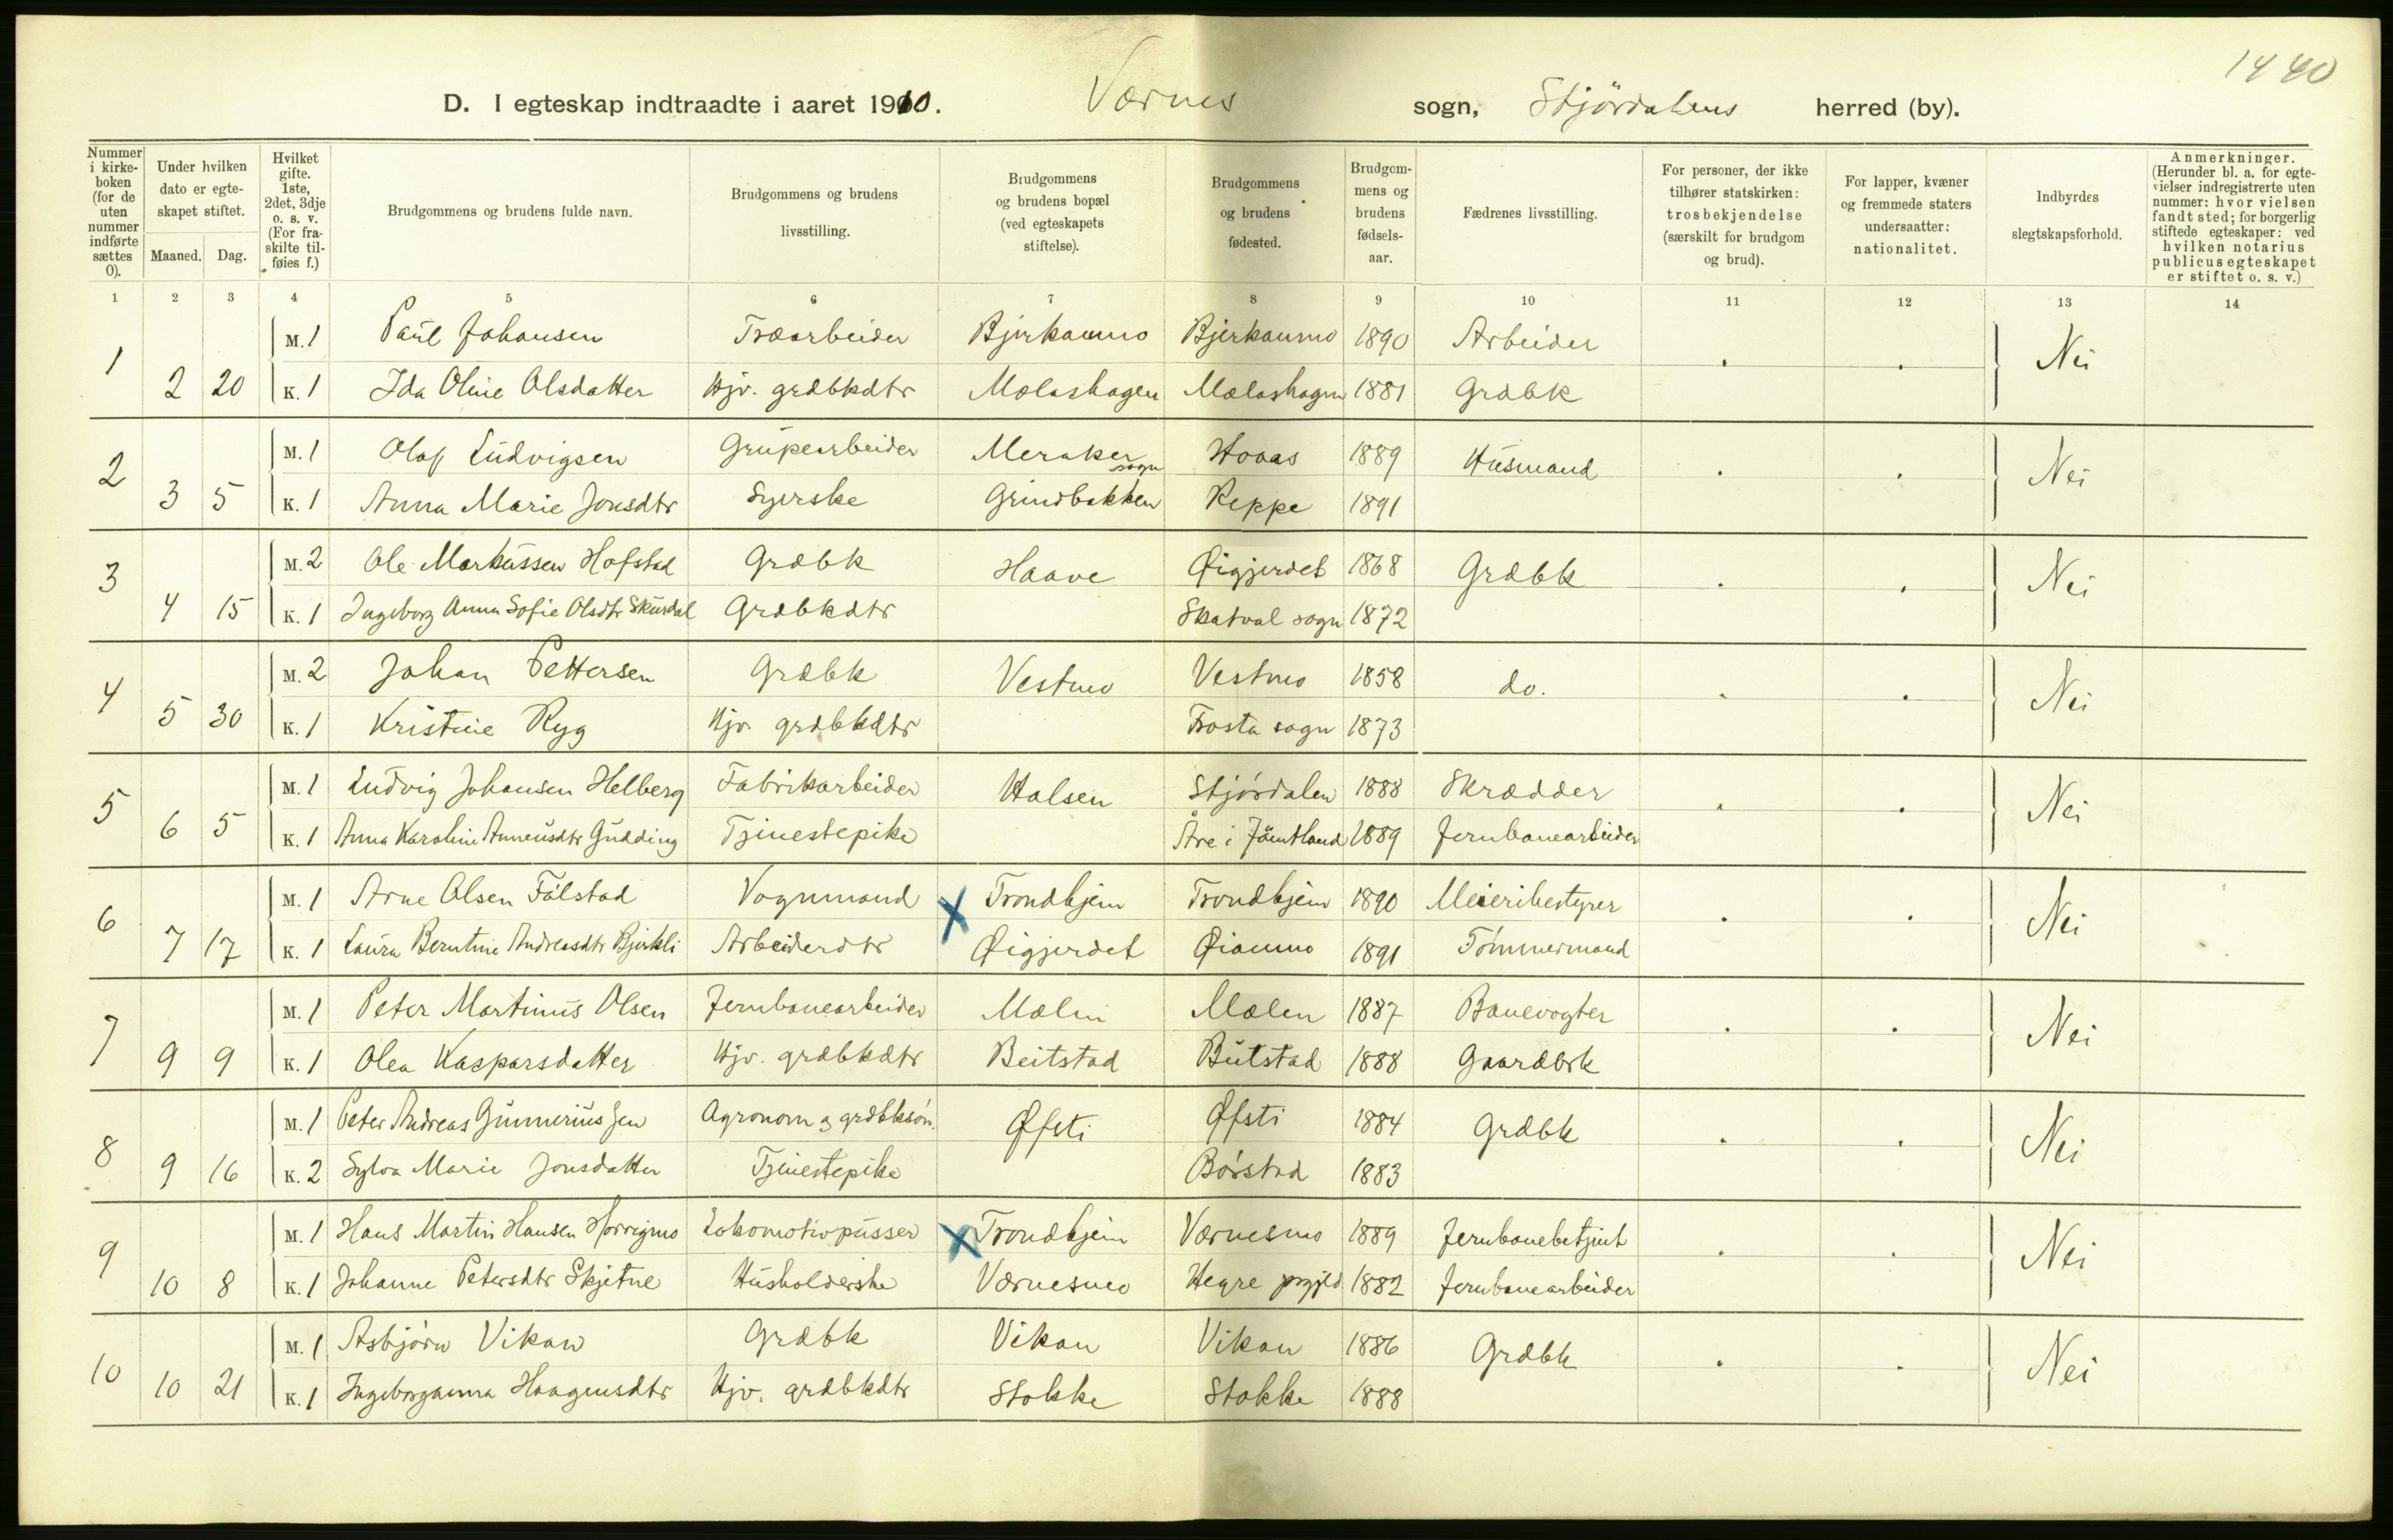 1440
D. I egteskap indtraadte i aaret 1910. Værnes sogn, Stjørdalens herred (by).
Nummer i kirkeboken (for de uten nummer indførte sættes 0).
Under hvilken dato er egteskapet stiftet.
Maaned. Dag.
Hvilket gifte. 1ste, 2det, 3dje o. s. v. (For fraskilte tilføies f.)
Brudgommens og brudens fulde navn.
Brudgommens og brudens livsstilling.
Brudgommens og brudens bopæl (ved egteskapets stiftelse).
Brudgommens og brudens fødested.
Brudgommens og brudens fødselsaar.
Fædrenes livsstilling.
For personer, der ikke tilhører statskirken: trosbekjendelse (særskilt for brudgom og brud).
For lapper, kvæner og fremmede staters undersaatter: nationalitet.
Indbyrdes slegtskapsforhold.
Anmerkninger. (Herunder bl. a. for egtevielser indregistrerte uten nummer: hvor vielsen fandt sted; for borgerlig stiftede egteskaper: ved hvilken notarius publicus egteskapet er stiftet o. s. v.)
1 2 3 4 5 6 7 8 9 10 11 12 13 14
M. 1 Paul Johansen Træarbeider Bjerkanmo Bjerkanmo 1890 Arbeider
1 2 20 K. 1 Ida Oline Olsdatter Hjv. grdbkdtr Mælashagen Mælashagen 1881 Grdbk Nei
M. 1 Olaf Ludvigsen Grupearbeider Meraker sogn Hovas 1889 Husmand
2 3 5 K. 1 Anna Marie Jonsdtr Syerske Grindbakken Reppe 1891 Nei
M. 2 Ole Markussen Hofstad Grdbk Haave Øigjerdet 1868 Grdbk
3 4 15 K. 1 Ingeborg Anna Sofie Olsdtr Skurdal Grdbkdtr Skatval sogn 1872 Nei
M. 2 Johan Pettersen Grdbk Vestmo Vestmo 1858 do.
4 5 30 K. 1 Kristine Ryg Hjv. grdbkdtr Frosta sogn 1873 Nei
M. 1 Ludvig Johansen Helberg Fabrikarbeider Halsen Stjørdalen 1888 Skrædder
5 6 5 K. 1 Anna Karoline Annæusdtr Gudding Tjenestepike Åre i Jämtland 1889 Jernbanearbeider Nei
M. 1 Arne Olsen Falstad Vognmand X Trondhjem Trondhjem 1890 Meieribestyrer
6 7 17 K. 1 Laura Berntine Andreasdtr Bjerkli Arbeiderdtr Øigjerdet Øianmo 1891 Tømmermand Nei
M. 1 Peter Martinus Olsen Jernbanearbeider Mælen Mælen 1887 Banevogter
7 9 9 K. 1 Olea Kasparsdatter Hjv. grdbkdtr Beitstad Beitstad 1888 Gaardbrk Nei
M. 1 Peter Andreas Gunneriussen Agronom og grdbksøn. Øfsti Øfsti 1884 Grdbk
8 9 16 K. 2 Sylva Marie Jonsdatter Tjenestepike Børstad 1883 Nei
M. 1 Hans Martin Hansen Lokomotivpusser X Trondhjem Værnesmo 1889 Jernbanebetjent
9 10 8 K. 1 Johanne Petersdtr Skjetne Husholderske Værnesmo Hegre prgjld 1882 Jernbanearbeider Nei
M. 1 Asbjørn Vikan Grdbk Vikan Vikan 1886 Grdbk
10 10 21 K. 1 Ingeborganna Haagensdtr Hjv. grdbkdtr Stokke Stokke 1888 Nei